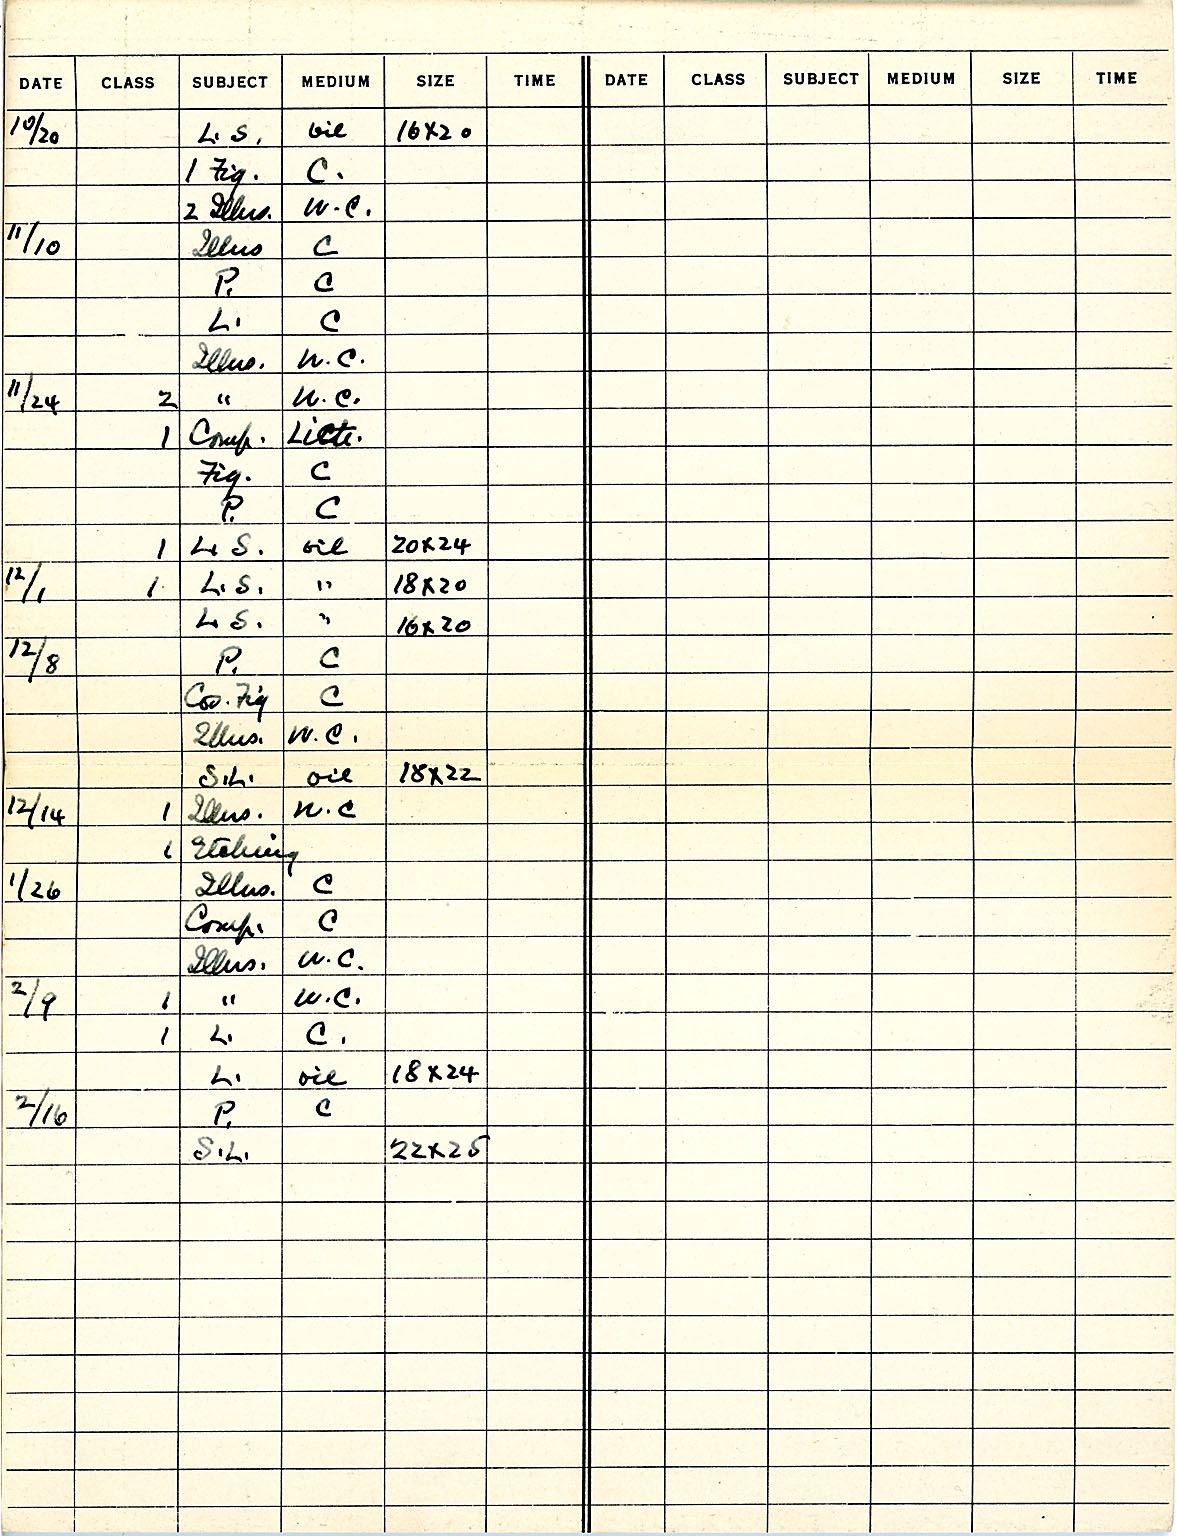 DATE CLASS SUBJECT MEDIUM SIZE TIME DATE CLASS SUBJECT MEDIUM SIZE TIME
10/20 L. S. oil 16X20
1 Fig. C.
2 Illus. W.C.
11/10 Illus C
P. C
L. C
Illus. W.C.
11/24 2 " W.C.
1 Comp. Litho.
Fig. C
P. C
1 L. S. oil 20X24
12/1 1 L. S. " 18X20
L. S. " 16X20
12/8 P. C
Cos. Fig C
Illus. W.C.
S.L. oil 18X22
12/14 1 Illus. W.C
1 Etching
1/26 Illus. C
Comp. C
Illus. W.C.
2/9 1 " W.C.
1 L. C.
L. oil 18X24
2/16 P. C
S.L. 22X25